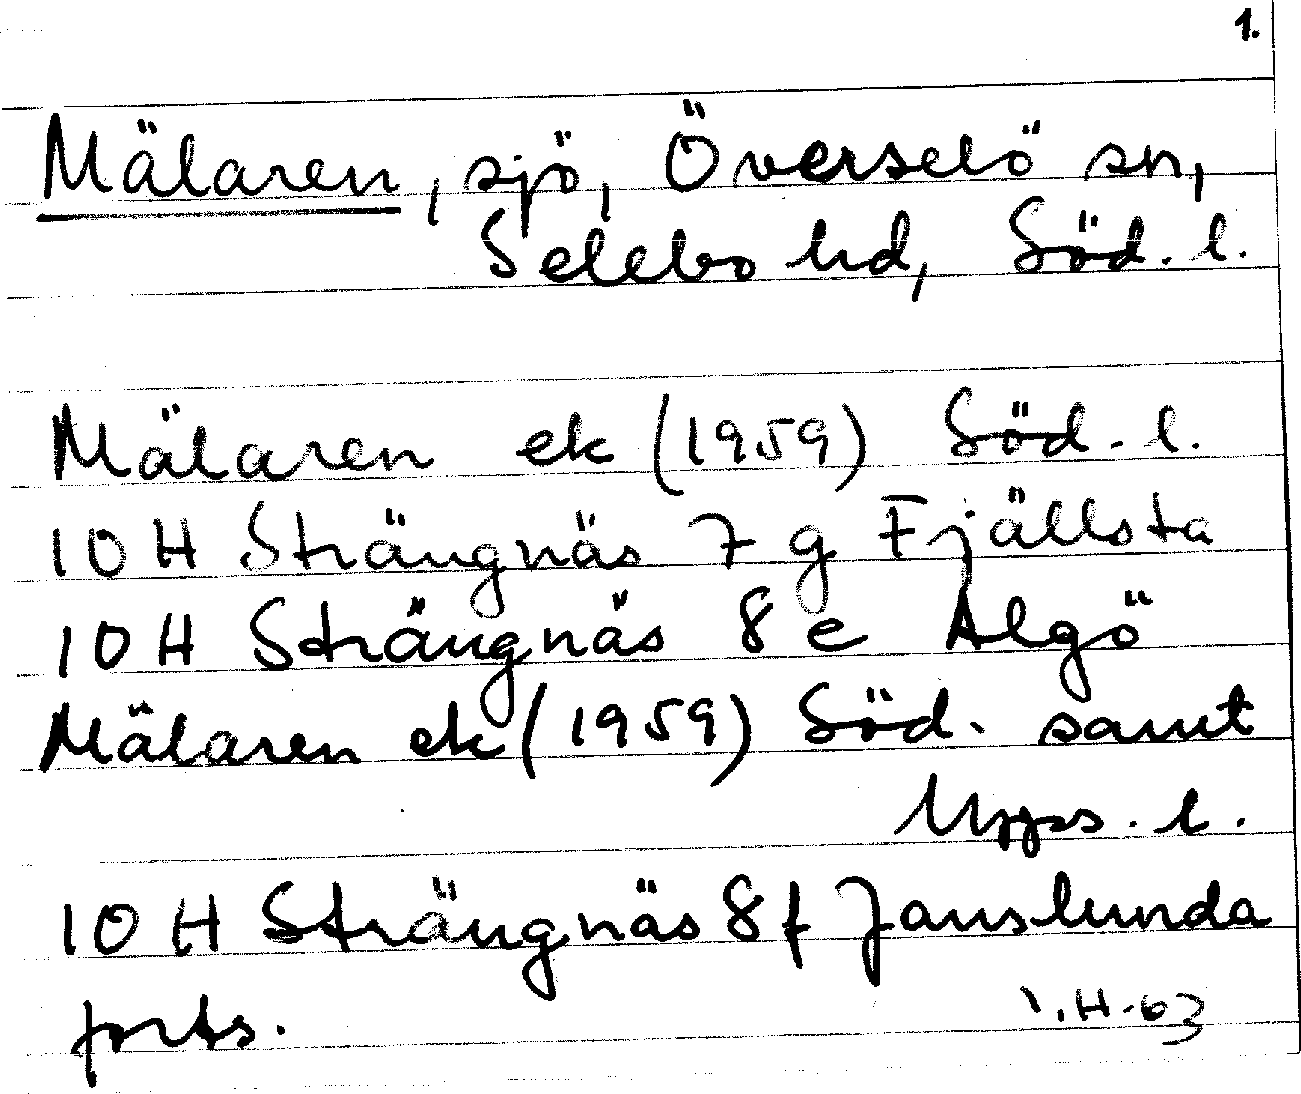 1.
Mälaren, sjö, Överselö sn,
Selebo hd, Söd. l.
Mälaren ek (1959) Söd. l.
10 H Strängnäs 7 g Fjällsta
10 H Strängnäs 8 e Algö
Mälaren ek (1959) Söd. samt
Upps. l.
10 H Strängnäs 8 f Janslunda
forts.
I.H-63